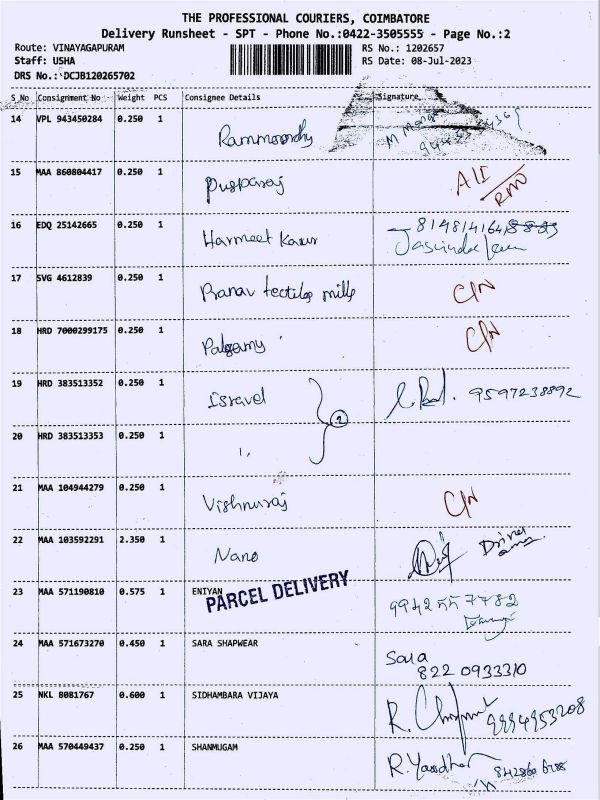 THE PROFESSIONAL COURIERS, COIMBATORE
Delivery Runsheet - SPT - Phone No.:0422-3505555 - Page No.:2
Route: VINAYAGAPURAM RS No.: 1202657
Staff: USHA RS Date: 08-Jul-2023
DRS No.: DCJB120265702
S_No Consignment No Weight PCS Consignee Details Signature
14 VPL 943450284 0.250 1 Rammoorthy
15 MAA 860804417 0.250 1 Pusparaj
16 EDQ 25142665 0.250 1 Harmeet Kaur
17 SVG 4612839 0.250 1 Pranav tectiles mills C/N
18 HRD 7000299175 0.250 1 C/N
19 HRD 383513352 0.250 1 Isravel 9597238892
2
20 HRD 383513353 0.250 1 ",
21 MAA 104944279 0.250 1 Vishnuraj C/N
22 MAA 103592291 2.350 1 Nano
23 MAA 571190810 0.575 1 ENIYAN 9942557782
PARCEL DELIVERY
24 MAA 571673270 0.450 1 SARA SHAPWEAR Sara
822 0933310
25 NKL 8081767 0.600 1 SIDHAMBARA VIJAYA R. 9994953208
26 MAA 570449437 0.250 1 SHANMUGAM